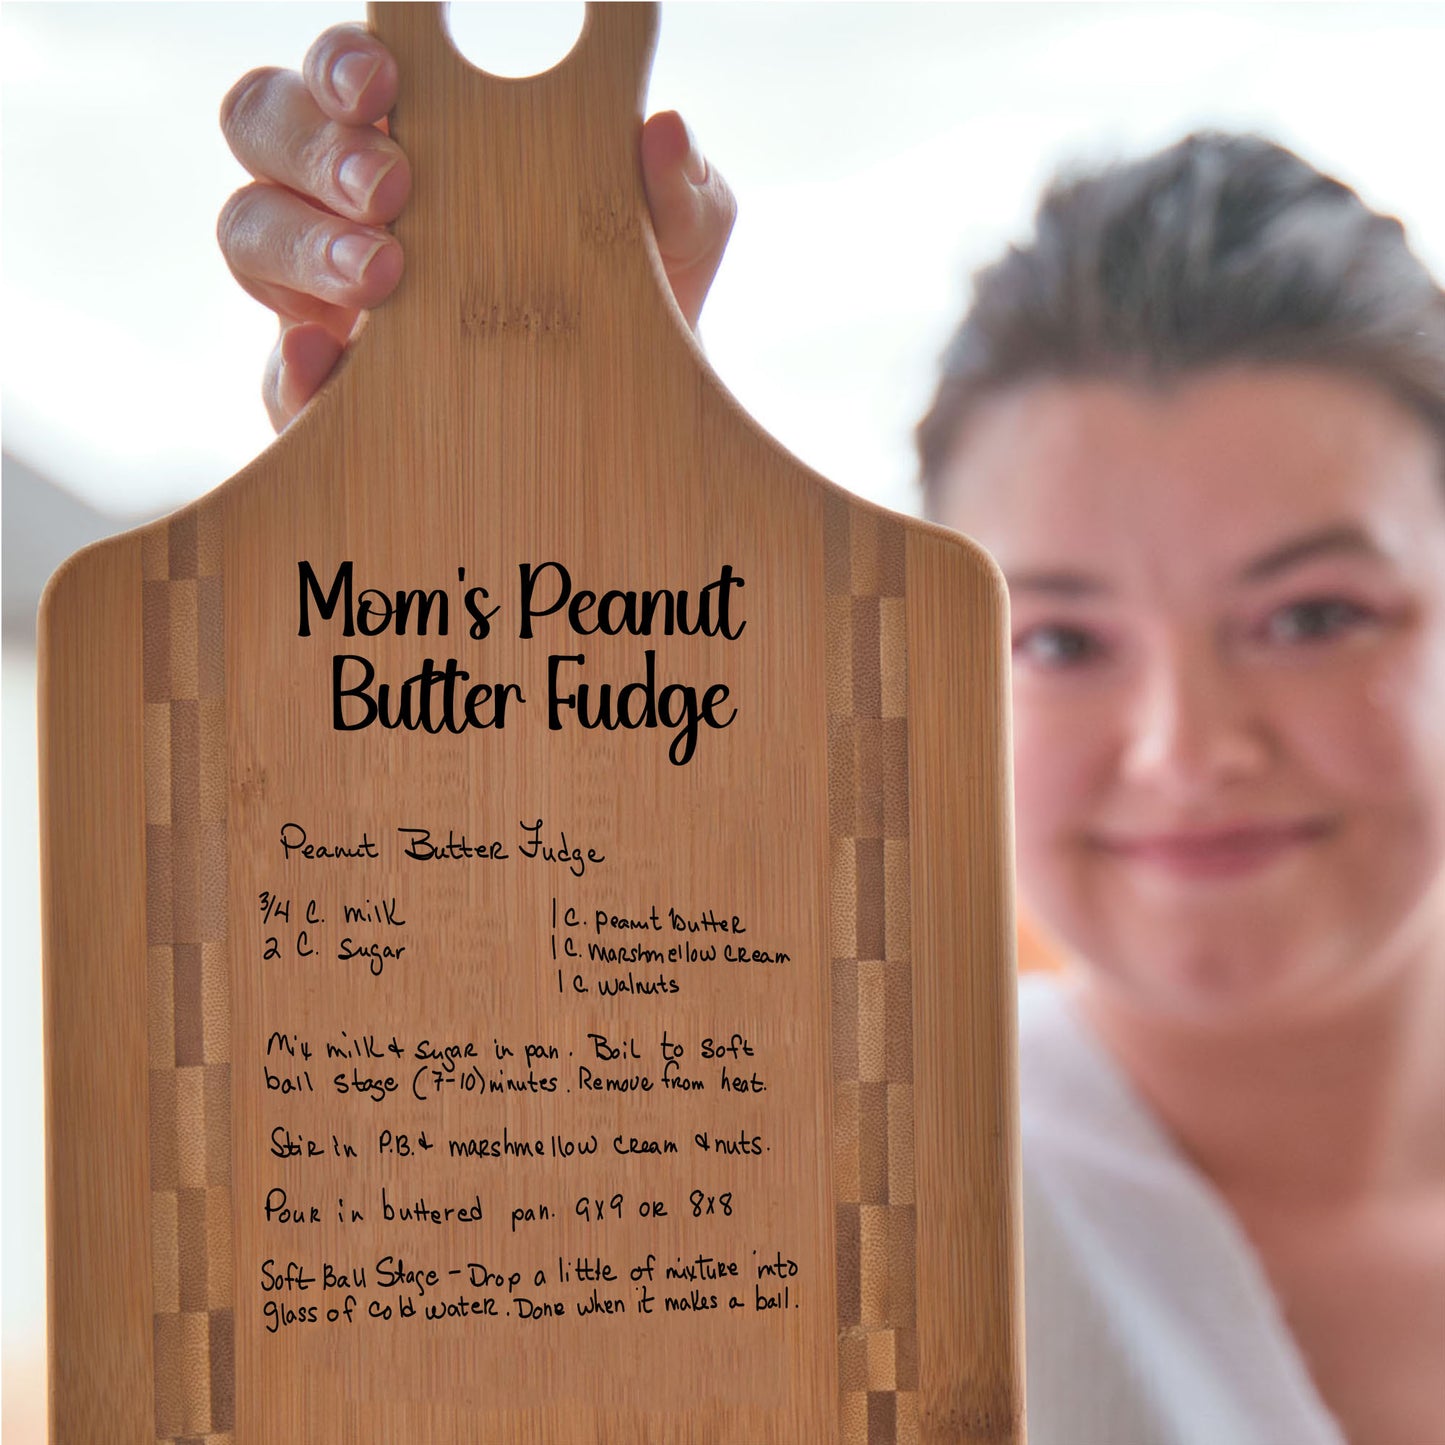 Mom's Peanut
Butter Fudge
Peanut Butter Fudge
3/4 C. milk
2 C. sugar
1 C. peanut butter
1 C. marshmellow cream
1 C. walnuts
Mix milk & sugar in pan. Boil to soft
ball stage (7-10) minutes. Remove from heat.
Stir in P.B. & marshmellow cream & nuts.
Pour in buttered pan. 9x9 or 8x8
Soft Ball Stage - Drop a little of mixture into
glass of cold water. Done when it makes a ball.